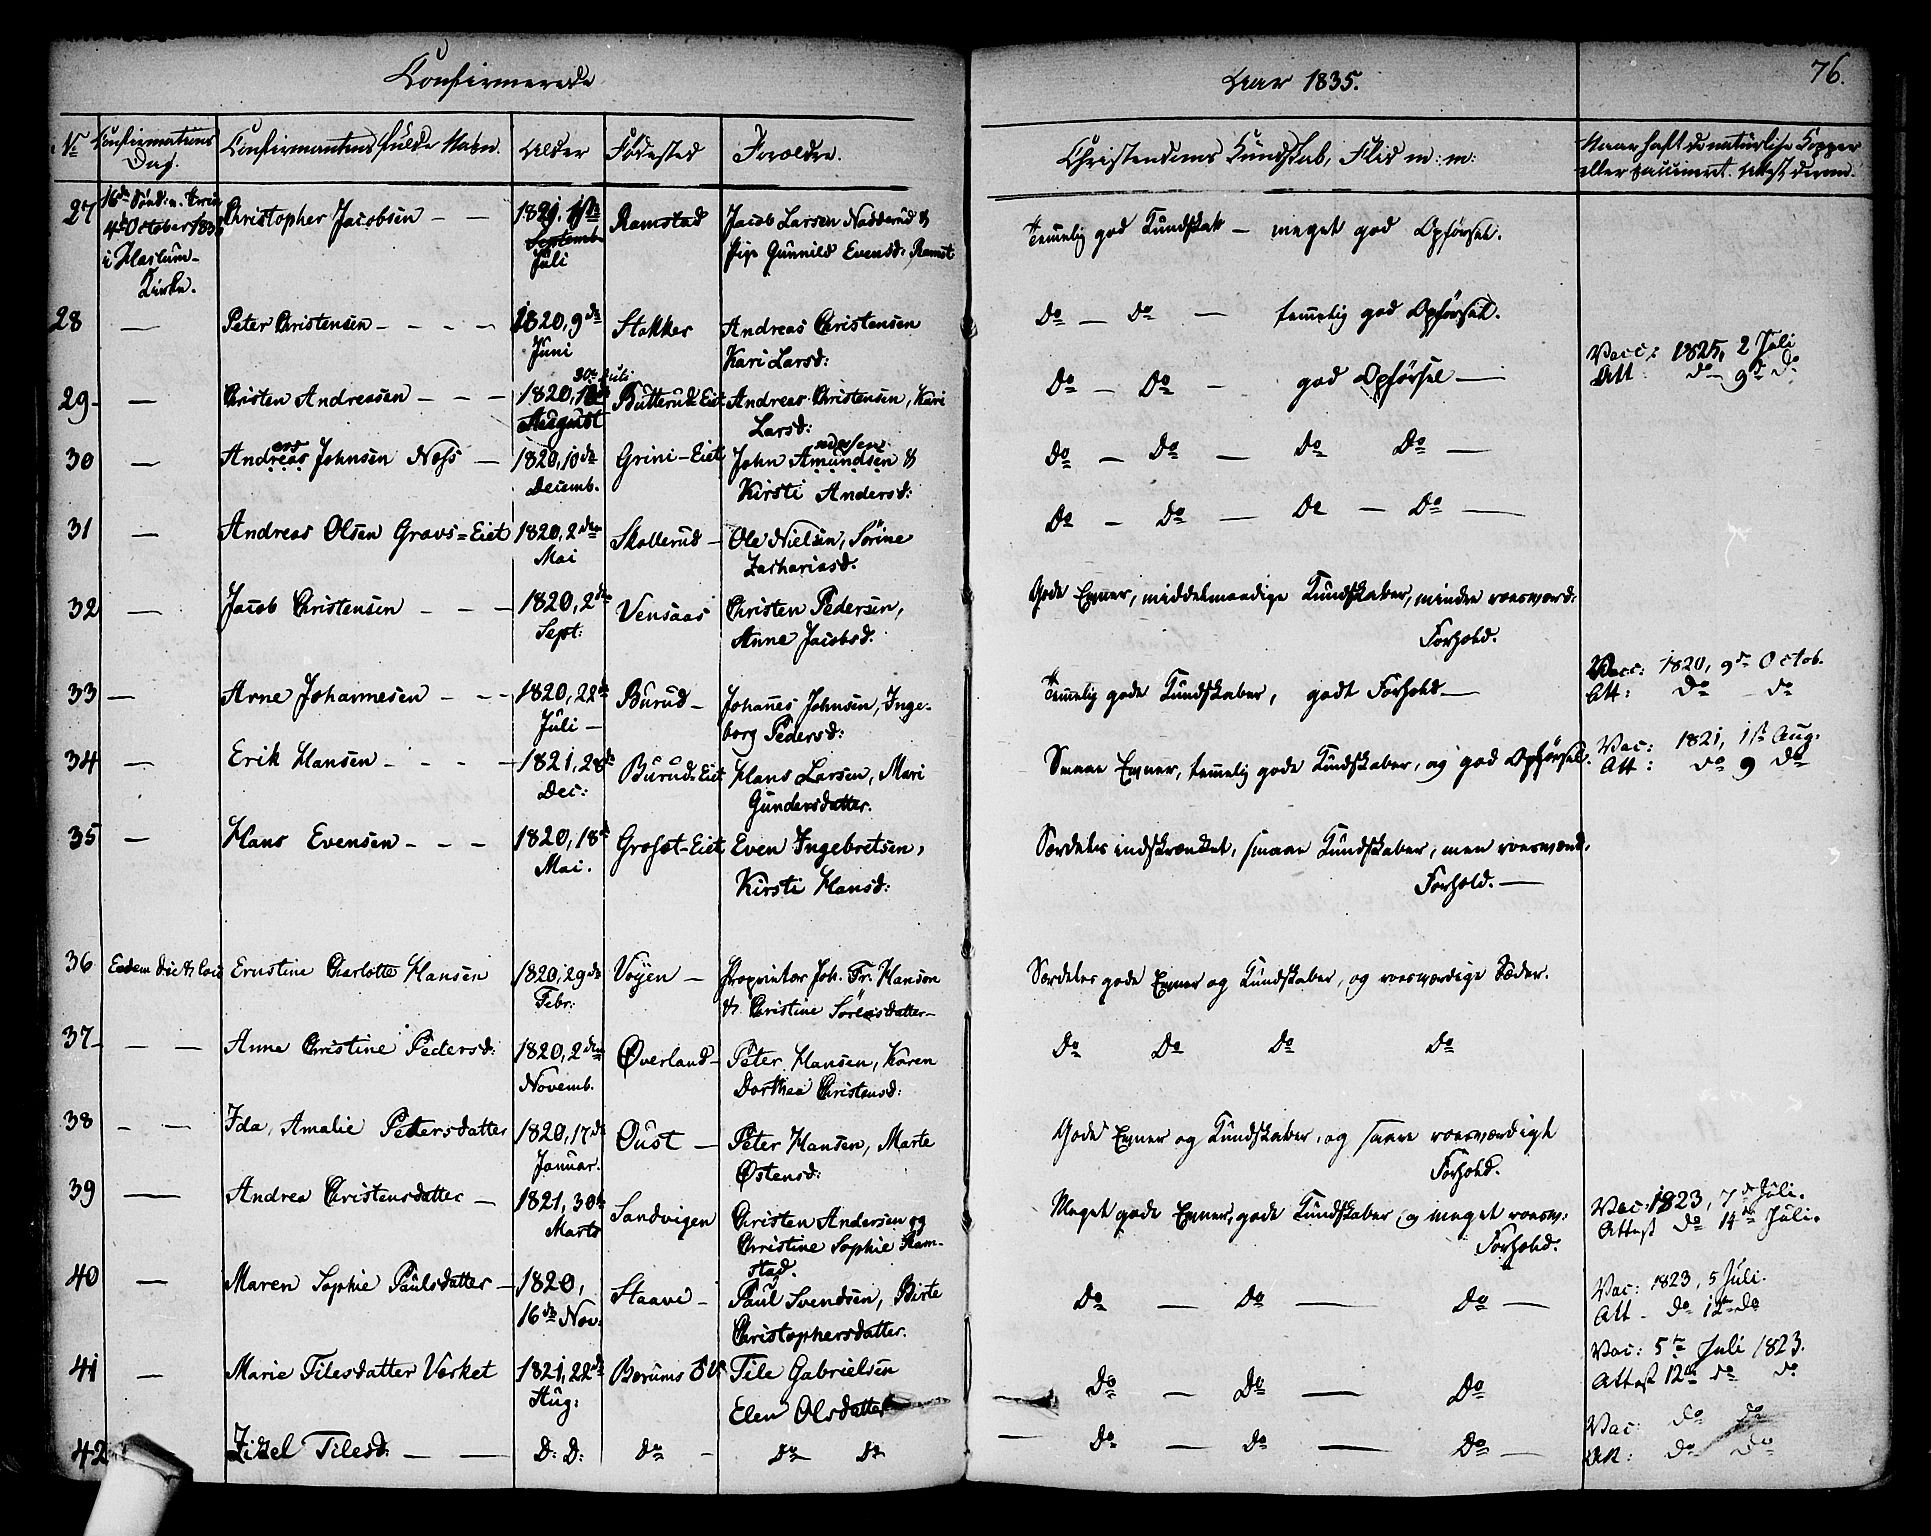 Confirmerede
Aar 1835.
76.
No Confirmations Dag. Confirmantens fulde Navn. Alder Fødested Forældre.
Christendoms Kundskab, Flid m: m:
Naar haft de naturlige Kopper
eller vaccineret.
27 Christopher Jacobsen — — 1821, Ramstad Jacob Larsen Nadderud &
4de October 1835 Septemb. Pige Gunnild Evensd: Ramst
i Haslum Juli
Kirke.
Temelig god Kundskab — meget god Opførsel.
28 — Peter Christensen - - - - 1820, 9de Stokker Andreas Christensen
Juni Kari Larsd:
Do — Do — temelig god Opførsel.
Vacc: 1825, 2 Juli
Att: do 9d do
29 — Christen Andreasen - - - 1820, Butterud-Eiet Andreas Christensen, Kari
30te Juli August Larsd:
Do — Do — god Opførsel —
30 — Andreas Johnsen Næss — 1820, 10de Grini-Eiet John Amundsen &
Decemb. Kirsti Andersd:
Do — Do — Do Do —
31 — Andreas Olsen Gravs=Eiet 1820, 2den Skollerud — Ole Nielsen, Sørine
Mai Zachariasd.
Do — Do — Do — Do —
32 — Jacob Christensen - - - 1820, 2de Vensaas Christen Pedersen,
Sept: Anne Jacobsd.
Gode Evner, middelmaadige Kundskaber, mindre roesværd:
Forhold.
33 — Arne Johannesen - - - 1820, 22de Burud — Johanes Johnsen, Inge-
Juli — borg Pedersd:
Temelig gode Kundskaber, godt Forhold —
Vacc: 1820, 9de Octob.
Att: Do — do
34 — Erik Hansen - - - - 1821, 28de Burud-Eiet Hans Larsen, Mari
Dec: Gundersdatter.
Smaae Evner, temelig gode Kundskaber, og god Opførsel.
Vac: 1821, 1ste Aug:
Att: do 9 do
35 — Hans Evensen - - - 1820, 18de Grosset-Eiet Even Ingebretsen,
Mai. Kirsti Hansd:
Særdeles indskrænket, smaae Kundskaber, men roesværd.
Forhold. —
36 Eodem die & loco Ernstine Charlotte Hansen 1820, 29de Vøyen — Proprietær Joh. Fr. Hansen
Febr: & Christine Sørensdatter —
Særdeles gode Evner og Kundskaber, og roesværdige Sæder.
37 — — Anne Christine Pedersd: 1820, 2den Øverland — Peter Hansen, Karen
Novemb. Dorthea Christensd:
Do Do Do Do
38 — — Ida, Amalie Pettersdatter 1820, 17de Oust — Peter Hansen, Marte
Januar. Østensd:
Gode Evner og Kundskaber, og saare roesværdigt
Forhold.
39 — Andrea Christensdatter — 1821, 30te Sandvigen Christen Andersen og
Marts Christine Sophie Ram-
stad.
Meget gode Evner, gode Kundskaber og meget roesv:
Forhold.
Vac: 1823, 7de Juli.
Attest do 14de Juli.
40 — Maren Sophie Paulsdatter — 1820, Staave — Paul Svendsen, Birte
16de Nov: Christophersdatter.
Do — Do — Do —
Vac: 1823, 5 Juli.
Att — do 12te do
41 — Marie Tilesdatter Verket 1821, 22de Bærums Tile Gabrielsen
Aug: Elen Olsdatter
Do — Do — Do
Vac: 5te Juli 1823.
Attest 12te do do
42 Zizel Tilesd: — — D: D: do — do do
— Do — Do — Do —
Vac: do do
Att: do do